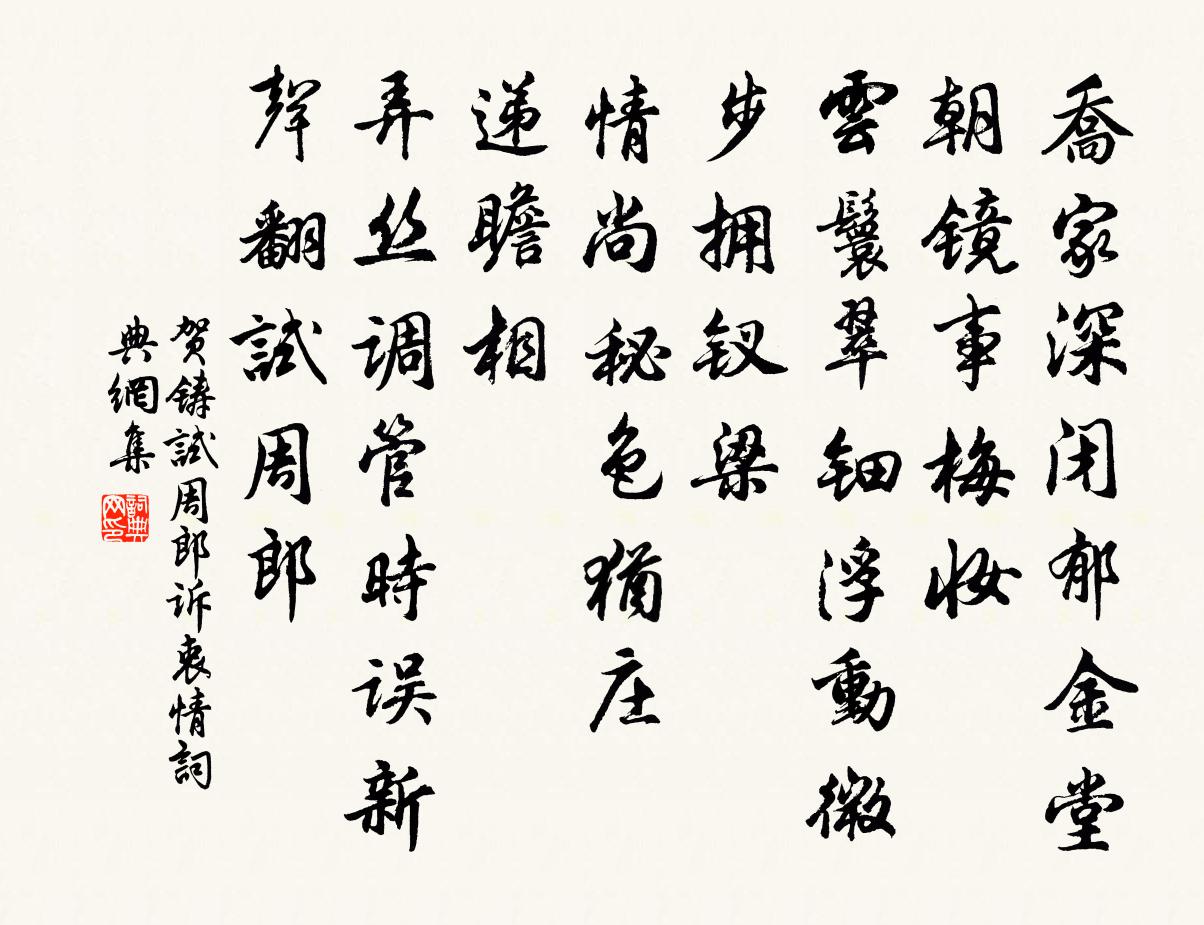 喬家深闭郁金堂
朝镜事梅妆
雲鬟翠钿浮動微
步拥钗梁
情尚秘色犹庄
递瞻相
弄丝调管時误新
聲翻試周郎
贺鑄試周郎诉衷情詞
典網集
詞典网印